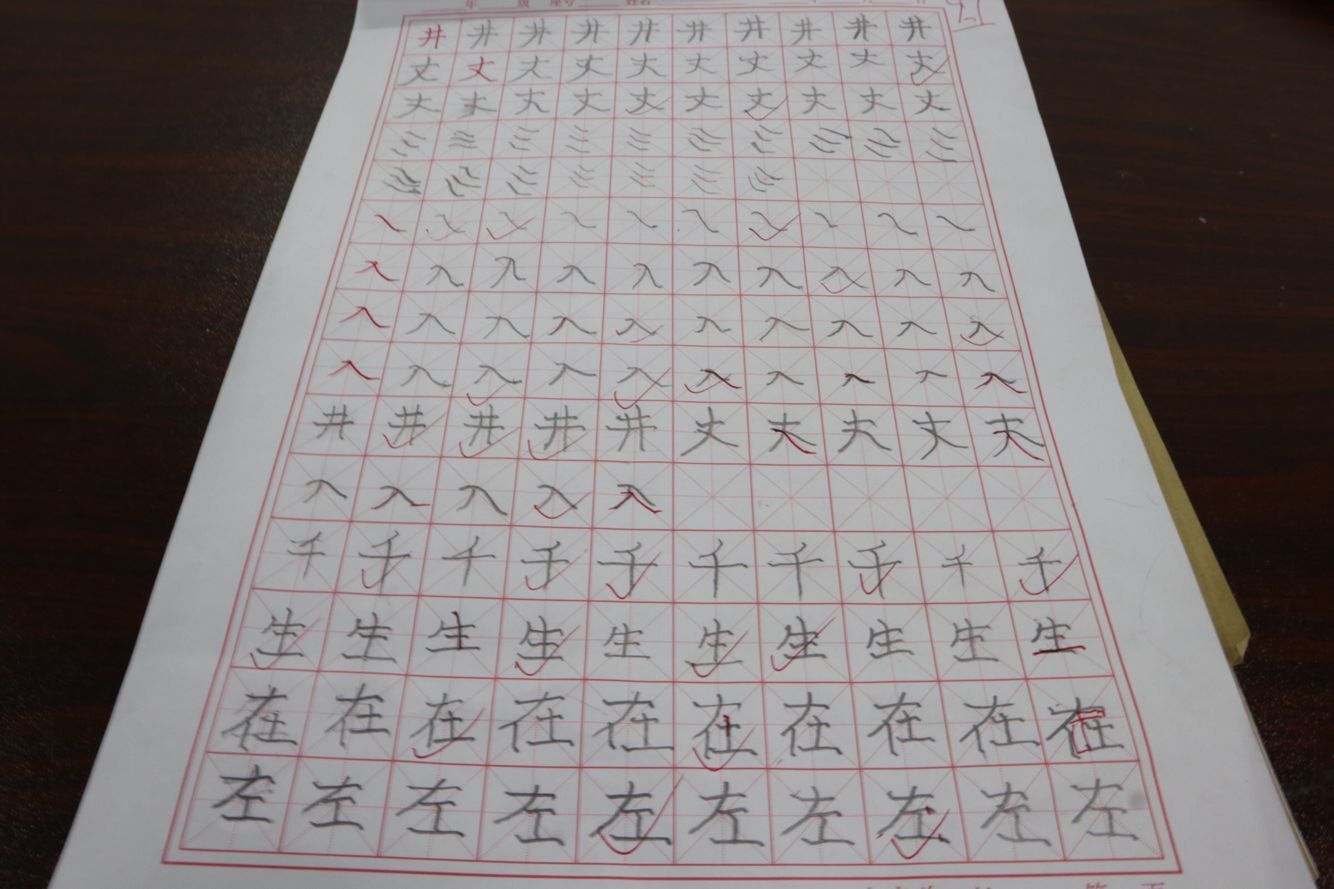 年 级 座号 姓名 年 月 日
井 井 井 井 井 井 井 井 井 井
丈 丈 丈 丈 丈 丈 丈 丈 丈 丈
丈 丈 丈 丈 丈 丈 丈 丈 丈 丈
入 入 入 入 入 入 入 入 入 入
入 入 入 入 入 入 入 入 入 入
入 入 入 入 入 入 入 入 入 入
井 井 井 井 井 丈 丈 丈 丈 丈
入 入 入 入 入
千 千 千 千 千 千 千 千 千 千
生 生 生 生 生 生 生 生 生 生
在 在 在 在 在 在 在 在 在 在
左 左 左 左 左 左 左 左 左 左